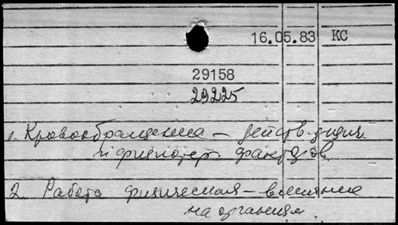 16.05.83 КС
29158
29225
1. Кровообращение – действ. физич.
и физиотер. факторов
2. Работа физическая – влияние
на организм